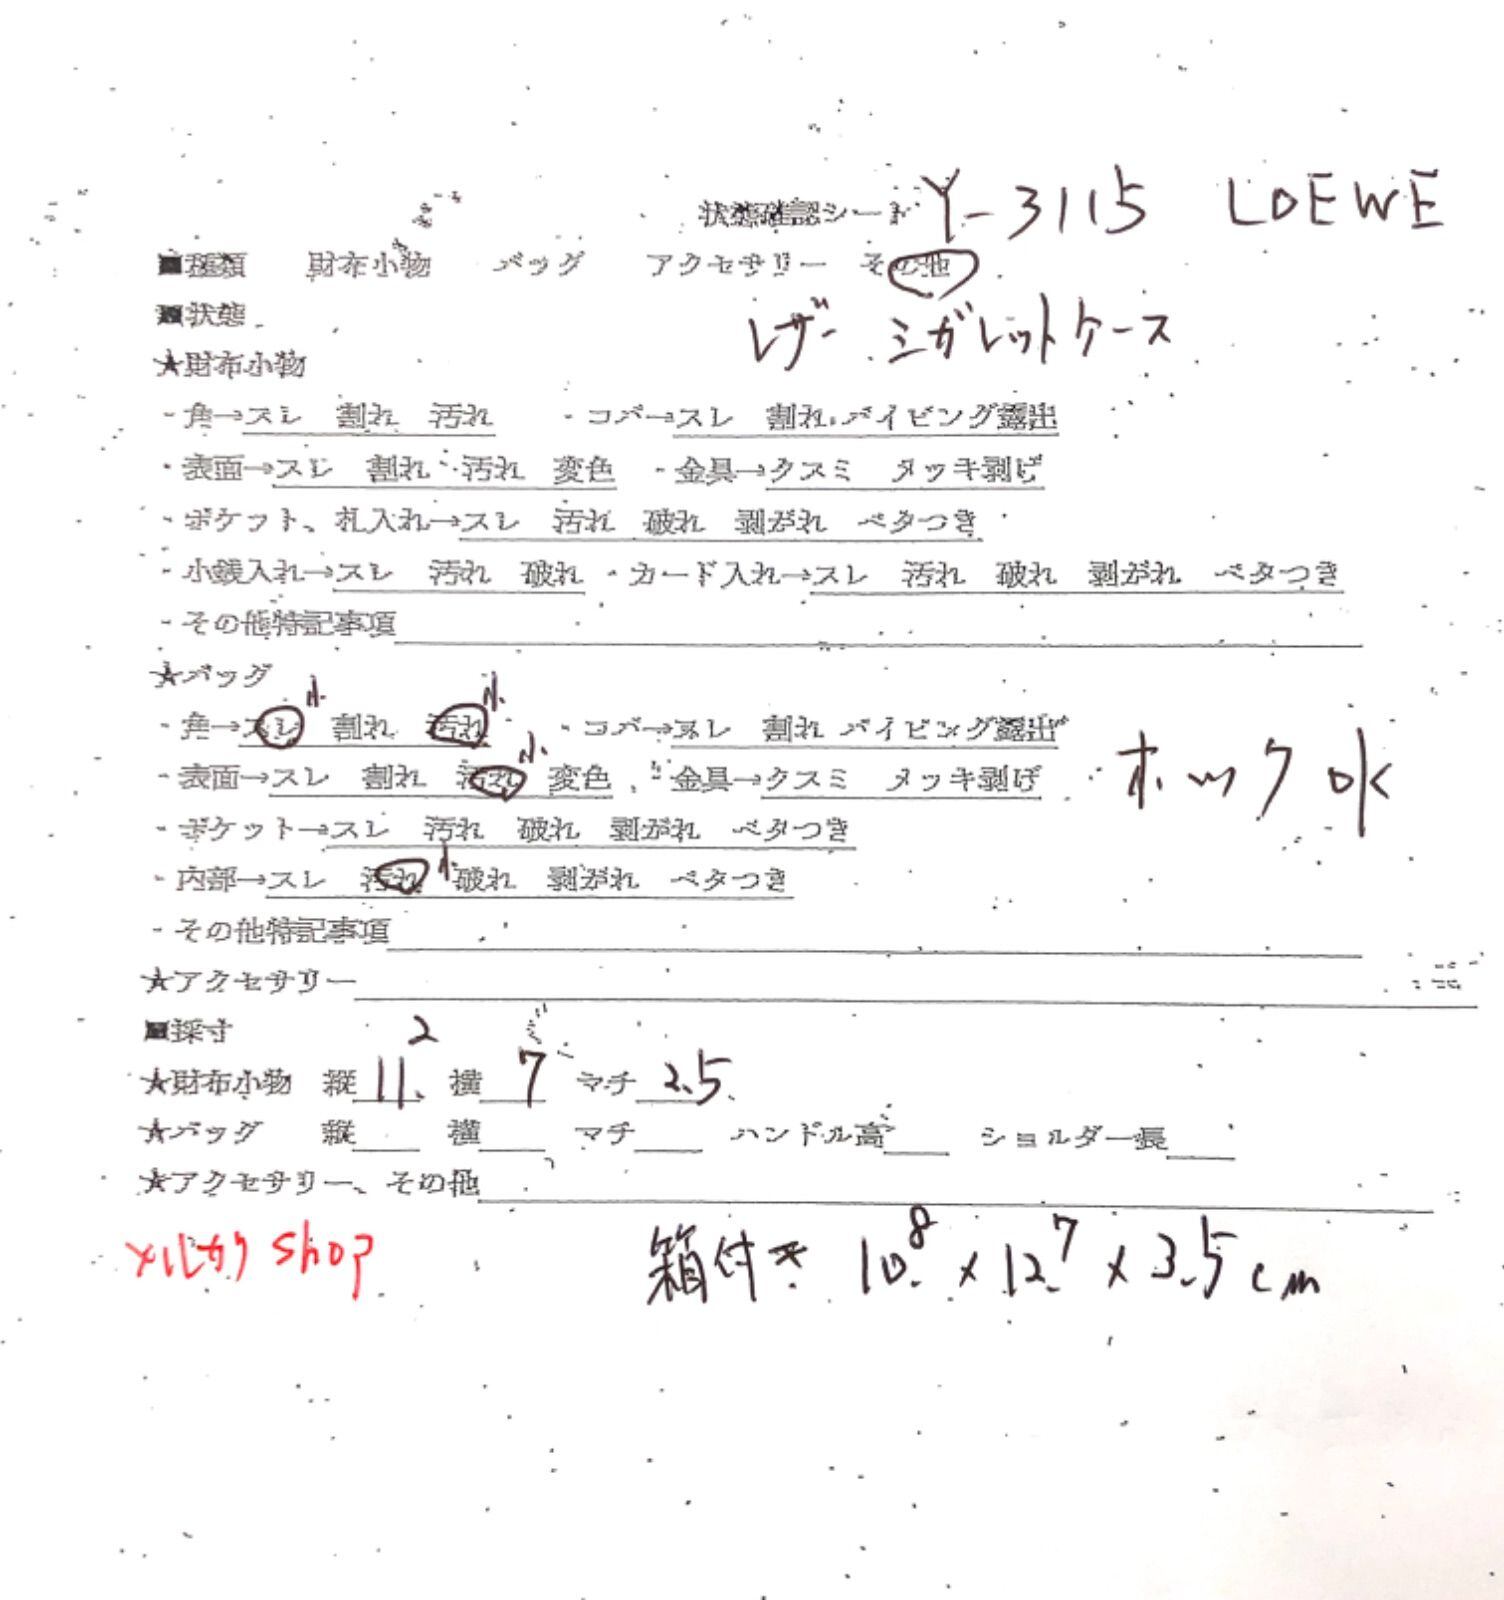 状態確認シート Y-3115 LOEWE
■種類 財布小物 バッグ アクセサリー その他
■状態 レザー シガレットケース
★財布小物
・角→スレ 割れ 汚れ ・コバ→スレ 割れ パイピング露出
・表面→スレ 割れ 汚れ 変色 ・金具→クスミ メッキ剥げ
・ポケット、札入れ→スレ 汚れ 破れ 剥がれ ベタつき
・小銭入れ→スレ 汚れ 破れ ・カード入れ→スレ 汚れ 破れ 剥がれ ベタつき
・その他特記事項
★バッグ
・角→スレ小 割れ 汚れ小 ・コバ→スレ 割れ パイピング露出
・表面→スレ 割れ 汚れ小 変色 ・金具→クスミ メッキ剥げ ホック ok
・ポケット→スレ 汚れ 破れ 剥がれ ベタつき
・内部→スレ 汚れ小 破れ 剥がれ ベタつき
・その他特記事項
★アクセサリー
■採寸
★財布小物 縦 11.2 横 7 マチ 2.5
★バッグ 縦 横 マチ ハンドル高 ショルダー長
★アクセサリー、その他
メルカリ shop 箱付き 10.8 x 12.7 x 3.5 cm